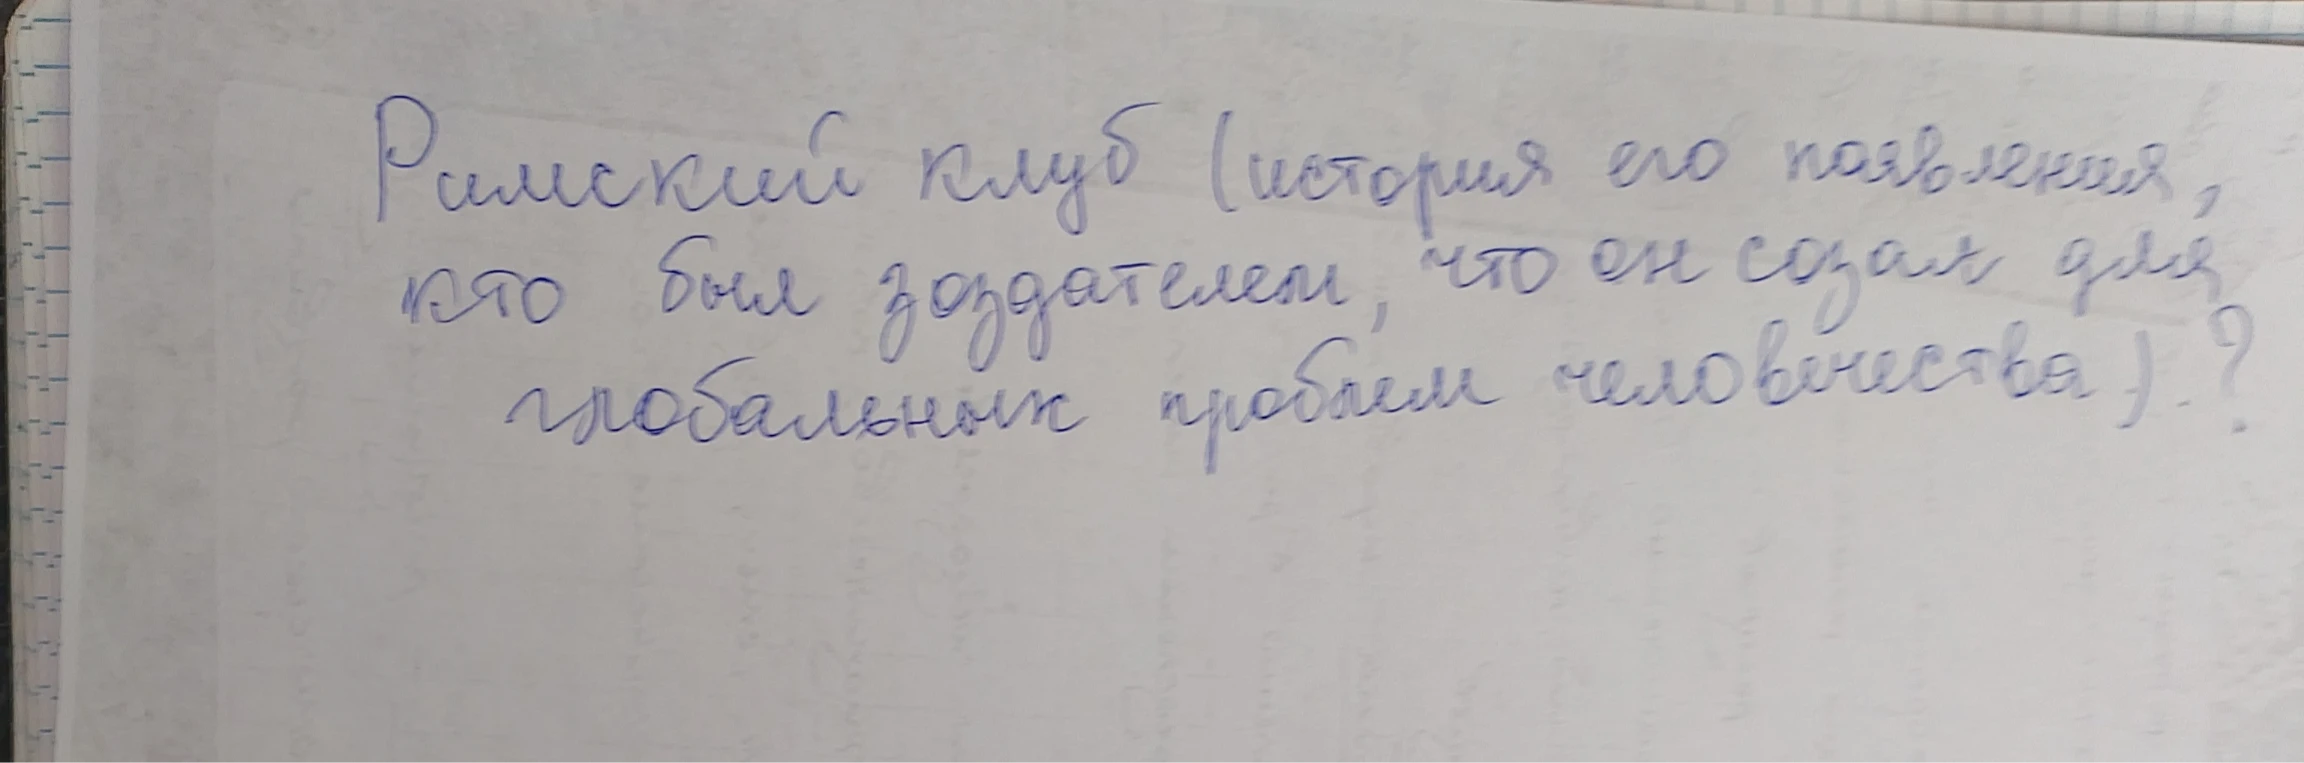 Римский клуб (история его появления,
кто был зоздателем, что он созал для
глобальных проблем человечества).?